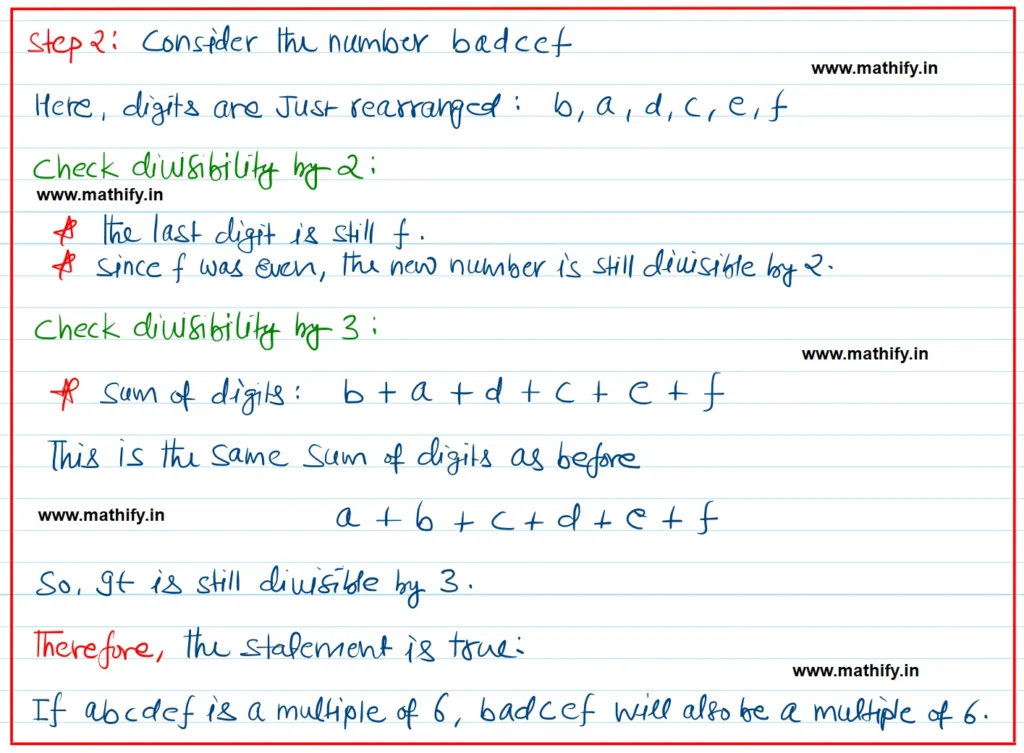 Step 2: Consider the number badcef
www.mathify.in
Here, digits are Just rearranged: b, a, d, c, e, f
Check divisibility by 2:
www.mathify.in
* the last digit is still f.
* since f was even, the new number is still divisible by 2.
Check divisibility by 3:
www.mathify.in
* Sum of digits: b + a + d + c + e + f
This is the same sum of digits as before
www.mathify.in a + b + c + d + e + f
So, It is still divisible by 3.
Therefore, the statement is true:
www.mathify.in
If abcdef is a multiple of 6, badcef will also be a multiple of 6.